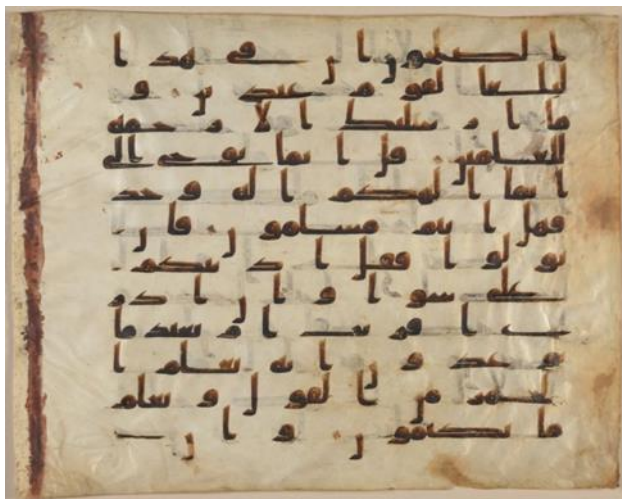 الصلحون ان في هدا
لبلعا لقوم عبدين و
ما ارسلنك الا رحمه
للعلمين قل انما يوحى الى
انما الهكم اله وحد
فهل انتم مسلمون فان
تولوا فقل ادنتكم
على سوا وان ادر
ى اقريب ام بعيد ما
توعدون انه يعلم ا
لجهر من القول ويعلم
ما تكتمون وان